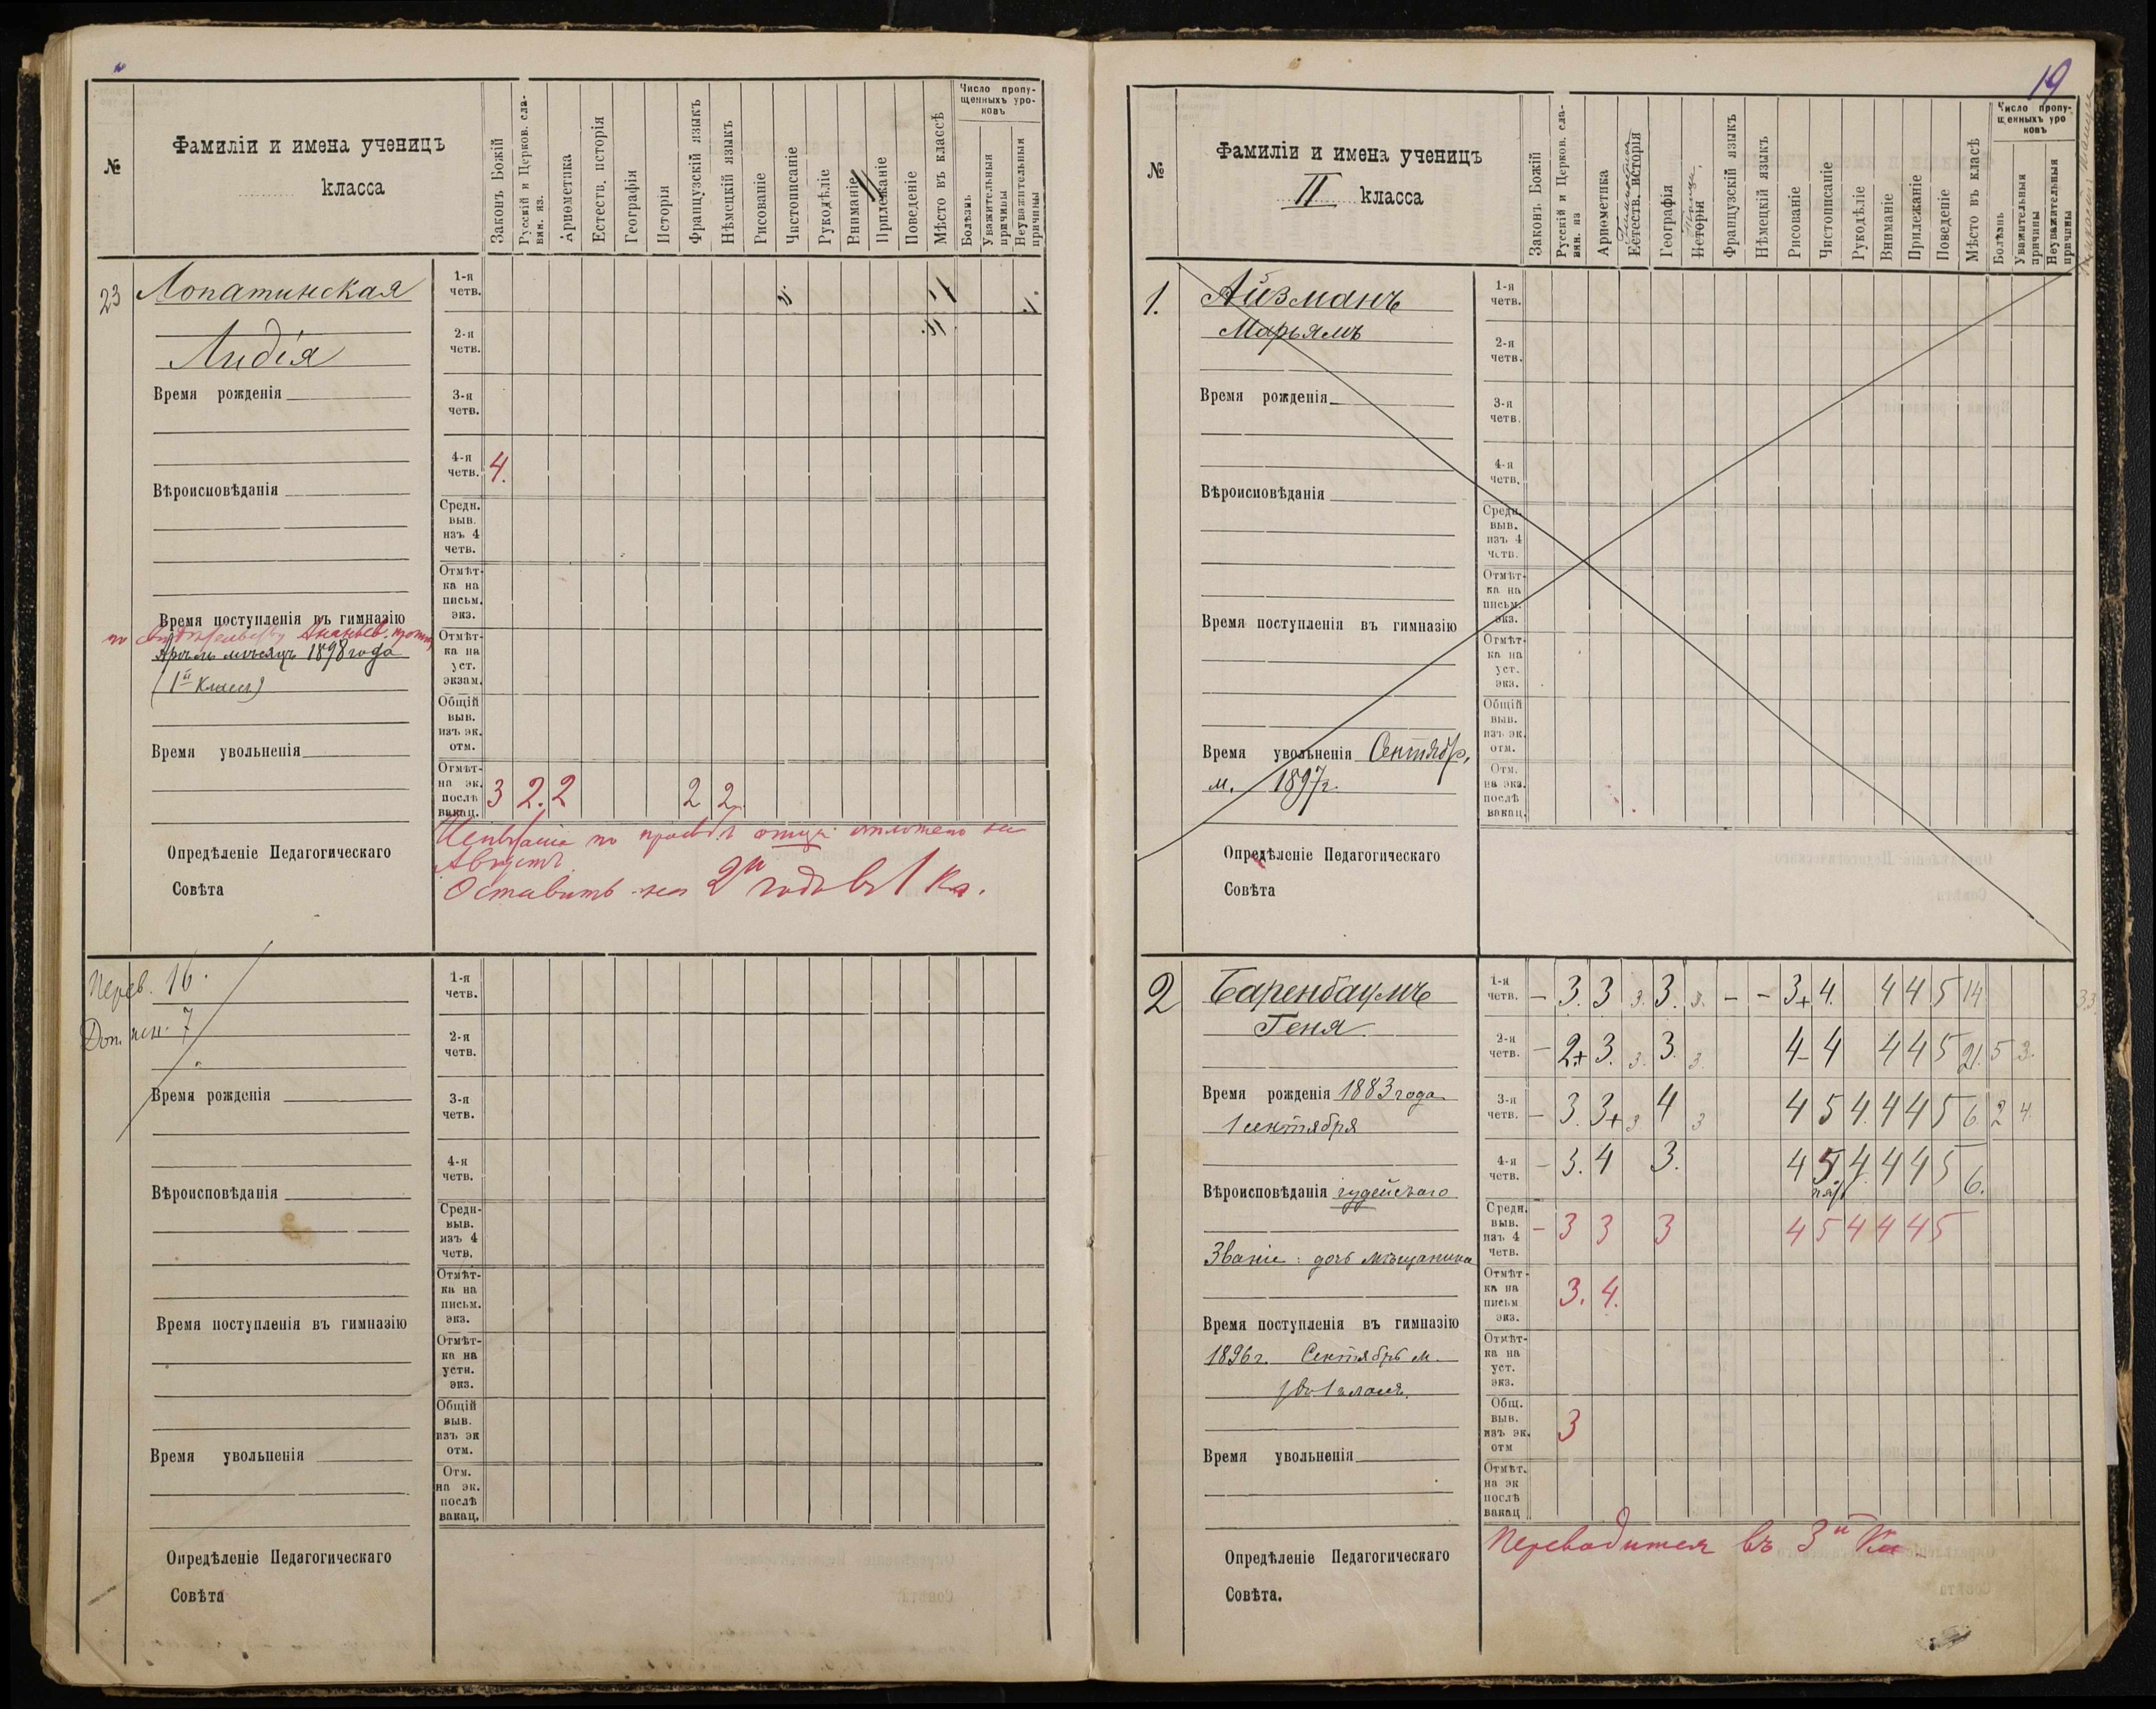 №
Фамиліи и имена ученицъ
класса
Законъ Божій
Русскій и Церков. сла-
вян. яз.
Ариѳметика
Естеств. исторія
Географія
Исторія
Французскій языкъ
Нѣмецкій языкъ
Рисованіе
Чистописаніе
Рукодѣліе
Вниманіе
Прилежаніе
Поведеніе
Мѣсто въ классѣ
Число пропу-
щенныхъ уро-
ковъ
Болѣзнь
Уважительныя
причины
Неуважительныя
причины
23
Лопатинская
Лидія
Время рожденія
Вѣроисповѣданія
Время поступленія въ гимназію
мѣсяцъ 1898 года
(1й Класс)
Время увольненія
Опредѣленіе Педагогическаго
Совѣта
1-я
четв.
2-я
четв.
3-я
четв.
4-я
четв. 4.
Средн.
выв.
изъ 4
четв.
Отмѣт-
ка на
письм.
экз.
Отмѣт-
ка на
уст.
экзам.
Общій
выв.
изъ эк.
отм.
Отмѣт-
на эк.
послѣ
вакац.
3 2. 2 2 2
отложено на
Августъ
Оставить на 2й годъ въ 1 кл.
Перев. 16.
Доп. исп. 7
Время рожденія
Вѣроисповѣданія
Время поступленія въ гимназію
Время увольненія
Опредѣленіе Педагогическаго
Совѣта
1-я
четв.
2-я
четв.
3-я
четв.
4-я
четв.
Средн-
выв.
изъ 4
четв.
Отмѣт-
ка на
письм.
экз.
Отмѣт-
ка на
устн.
экз.
Общій
выв.
изъ эк
отм.
Отм.
на эк.
послѣ
вакац.
19
№
Фамиліи и имена ученицъ
II класса
Законъ Божій
Русскій и Церков. сла-
вян. яз
Ариѳметика
Естеств. исторія
Географія
Исторія
Французскій языкъ
Нѣмецкій языкъ
Рисованіе
Чистописаніе
Рукодѣліе
Вниманіе
Прилежаніе
Поведеніе
Мѣсто въ класѣ
Число пропу-
щенныхъ уро
ковъ
Болѣзнь
Уважительныя
причины
Неуважительныя
причины
1.
Айзманъ
Марьямъ
Время рожденія
Вѣроисповѣданія
Время поступленія въ гимназію
Время увольненія Сентябр.
м. 1897г.
Опредѣленіе Педагогическаго
Совѣта
1-я
четв.
2-я
четв.
3-я
четв.
4-я
четв.
Средн.
выв.
изъ 4
четв.
Отмѣт-
ка на
письм.
экз.
Отмѣт-
ка на
уст.
экз.
Общій
выв.
изъ эк.
отм.
Отм.
на экз.
послѣ
вакац.
2
Баренбаумъ
Геня
Время рожденія 1883 года
1 сентября
Вѣроисповѣданія іудейскаго
Званіе: дочь мѣщанина
Время поступленія въ гимназію
1896г. Сентябрь м.
Время увольненія
Опредѣленіе Педагогическаго
Совѣта.
1-я
четв. – 3. 3 3. 3. 3. – – 3+ 4. 4 4 5 14
2-я
четв. – 2+ 3. 3. 3. 3. 4- 4 4 4 5 21. 5 3.
3-я
четв. – 3. 3+ 3 4 3 4 5 4. 4 4 5 6. 2 4.
4-я
четв. – 3. 4 3. 4 5 4. 4 4 5 6.
Средн.
выв.
изъ 4
четв.
– 3 3 3 4 5 4 4 4 5
Отмѣт-
ка на
письм
экз.
3. 4.
Отмѣт-
ка на
уст.
экз.
Общ.
выв.
изъ эк.
отм
3
Отмѣт.
на эк
послѣ
вакац
Переводится въ 3й Кл